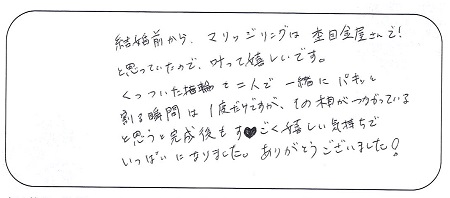 結婚前から、マリッジリングは 杢目金屋さんで!
と思っていたので、叶って嬉しいです。
くっついた指輪を二人で一緒にパキッと
割る瞬間は1度だけですが、その木目がつながっている
と思うと完成後もす♥ごく嬉しい気持ちで
いっぱいになりました。ありがとうございました!